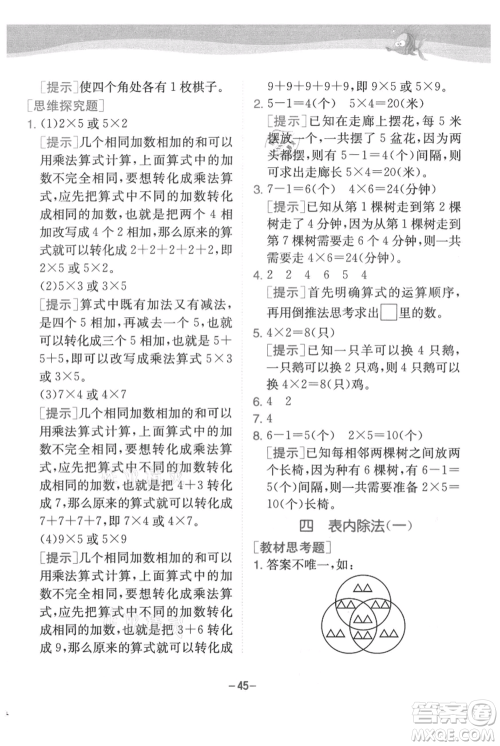 [提示]使四个角处各有1枚棋子。
[思维探究题]
1. (1)2×5或5×2
[提示]几个相同加数相加的和可以
用乘法算式计算，上面算式中的加
数不完全相同，要想转化成乘法算
式，可以把算式中的不同加数转化
成相同的加数，这个算式中的加数
4可以改写成2个2相加，那么原
来的算式就可以转化成2+2+2+2+
2，即2×5。
(2)5×3或3×5
[提示]算式中既有加法又有减法，
是四个5相加的和再减去一个5，
相当于三个5相加的和，即5+5+
5，可以改写成乘法算式5×3或
3×5。
(3)7×4或4×7
[提示]几个相同加数相加的和可以
用乘法算式计算，上面算式中的加
数不完全相同，要想转化成乘法算
式，可以把算式中的不同加数转化
成相同的加数，这个算式中的3+4
可以转化成7，那么原来的算式就
可以转化成7+7+7+7，即7×4。
(4)9×5或5×9
[提示]几个相同加数相加的和可以
用乘法算式计算，上面算式中的加
数不完全相同，要想转化成乘法算
式，可以把算式中的不同加数转化
成相同的加数，把算式中3+6转化
成9，那么原来的算式可以转化成
9+9+9+9+9，即9×5。
2. 5-1=4(个)　5×4=20(米)
[提示]已知在走廊上摆花，每5米
摆放一个，一共摆了5盆花，且两
头都摆，则有5-1=4(个)间隔，则
可求出走廊长5×4=20(米)。
3. 7-1=6(个)　4×6=24(分钟)
[提示]已知从第1棵树走到第2棵
树用了4分钟，则从第1棵树走到
第7棵树间隔7-1=6(个)，则一共
需要4×6=24(分钟)。
4. 2　2　4　6　5　4
[提示]首先明确算式的运算顺序，
再用倒推法思考求出□里的数。
5. 4×2=8(只)
[提示]已知一只羊可以换4只鹅，
一只鹅可以换2只鸡，则一只羊可
以换4×2=8(只)鸡。
6. 4　2
7. 4
8. 6-1=5(个)　2×5=10(个)
[提示]已知每相邻两棵树之间放两
个长椅，一共有6棵树，则有6-1=
5(个)间隔，则共需准备2×5=
10(个)长椅。
四　表内除法(一)
[教材思考题]
1. 答案不唯一，如：
-45-
作业精灵
MXQE.COM